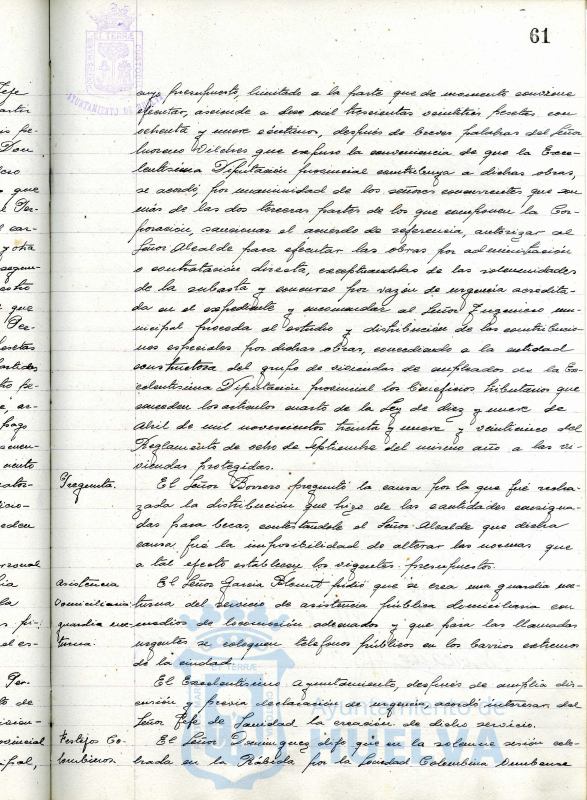 61
AYUNTAMIENTO DE HUELVA
yo presupuesto, limitado a la parte que de momento conviene
ejecutar, asciende a doce mil trescientas veintitres pesetas con
ochenta y nueve céntimos, después de breves palabras del Señor
Moreno Vilches que expuso la conveniencia de que la Exce-
lentísima Diputación provincial contribuya a dichas obras,
se acordó, por unanimidad de los señores concurrentes que son
más de las dos terceras partes de los que componen la Cor-
poración, sancionar el acuerdo de referencia, autorizar al
Señor Alcalde para ejecutar las obras por administración
o contratación directa, exceptuandolas de las solemnidades
de la subasta y concurso por razón de urgencia acredita-
da en el expediente y encomendar al Señor Ingeniero mu-
nicipal proceda al estudio y distribución de las contribucio-
nes especiales por dichas obras, concediendo a la entidad
constructora del grupo de viviendas de empleados de la Ex-
celentísima Diputación provincial los beneficios tributarios que
conceden los articulos cuarto de la Ley de diez y nueve de
Abril de mil novecientos treinta y nueve y veinticinco del
Reglamento de ocho de Septiembre del mismo año a las vi-
viendas protegidas.
Pregunta. El Señor Borrero preguntó la causa por la que fué recha-
zada la distribución que hizo de las cantidades consigna-
das para becas, contestándole el Señor Alcalde que dicha
causa fué la imposibilidad de alterar las normas que
a tal efecto establecen los vigentes presupuestos.
Asistencia El Señor García pidió que se crea una guardia noc-
domiciliaria: turna del servicio de asistencia pública domiciliaria con
guardia noc- medios de locomoción adecuados y que para las llamadas
turna. urgentes se coloquen teléfonos públicos en los barrios extremos
de la ciudad.
El Excelentísimo Ayuntamiento, después de amplia dis-
cusión y previa declaración de urgencia, acordó interesar del
Señor Jefe de Sanidad la creación de dicho servicio.
Festejos Co- El Señor Dominguez dijo que en la solemne sesión cele-
lombinos. brada en la Rábida por la Sociedad Colombina Onubense
Ayuntamiento de
HUELVA